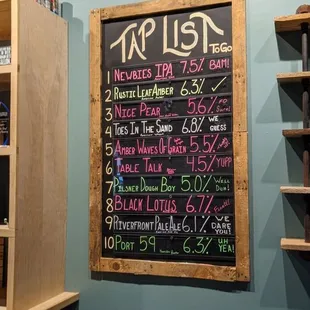 TAP LIST
To Go
1 NEWBIES IPA 7.5% BAM!
2 RUSTIC LEAF AMBER 6.3% ✓
3 NICE PEAR 5.6%
4 TOES IN THE SAND 6.8% WE GUESS
5 AMBER WAVES OF GRAIN 5.5%
6 TABLE TALK 4.5% YUPP
7 PILSNER DOUGH BOY 5.0% WELL DUH!
8 BLACK LOTUS 6.7%
9 RIVERFRONT PALE ALE 6.1% WE DARE YOU!
10 PORT 59 6.3% UH YEA!